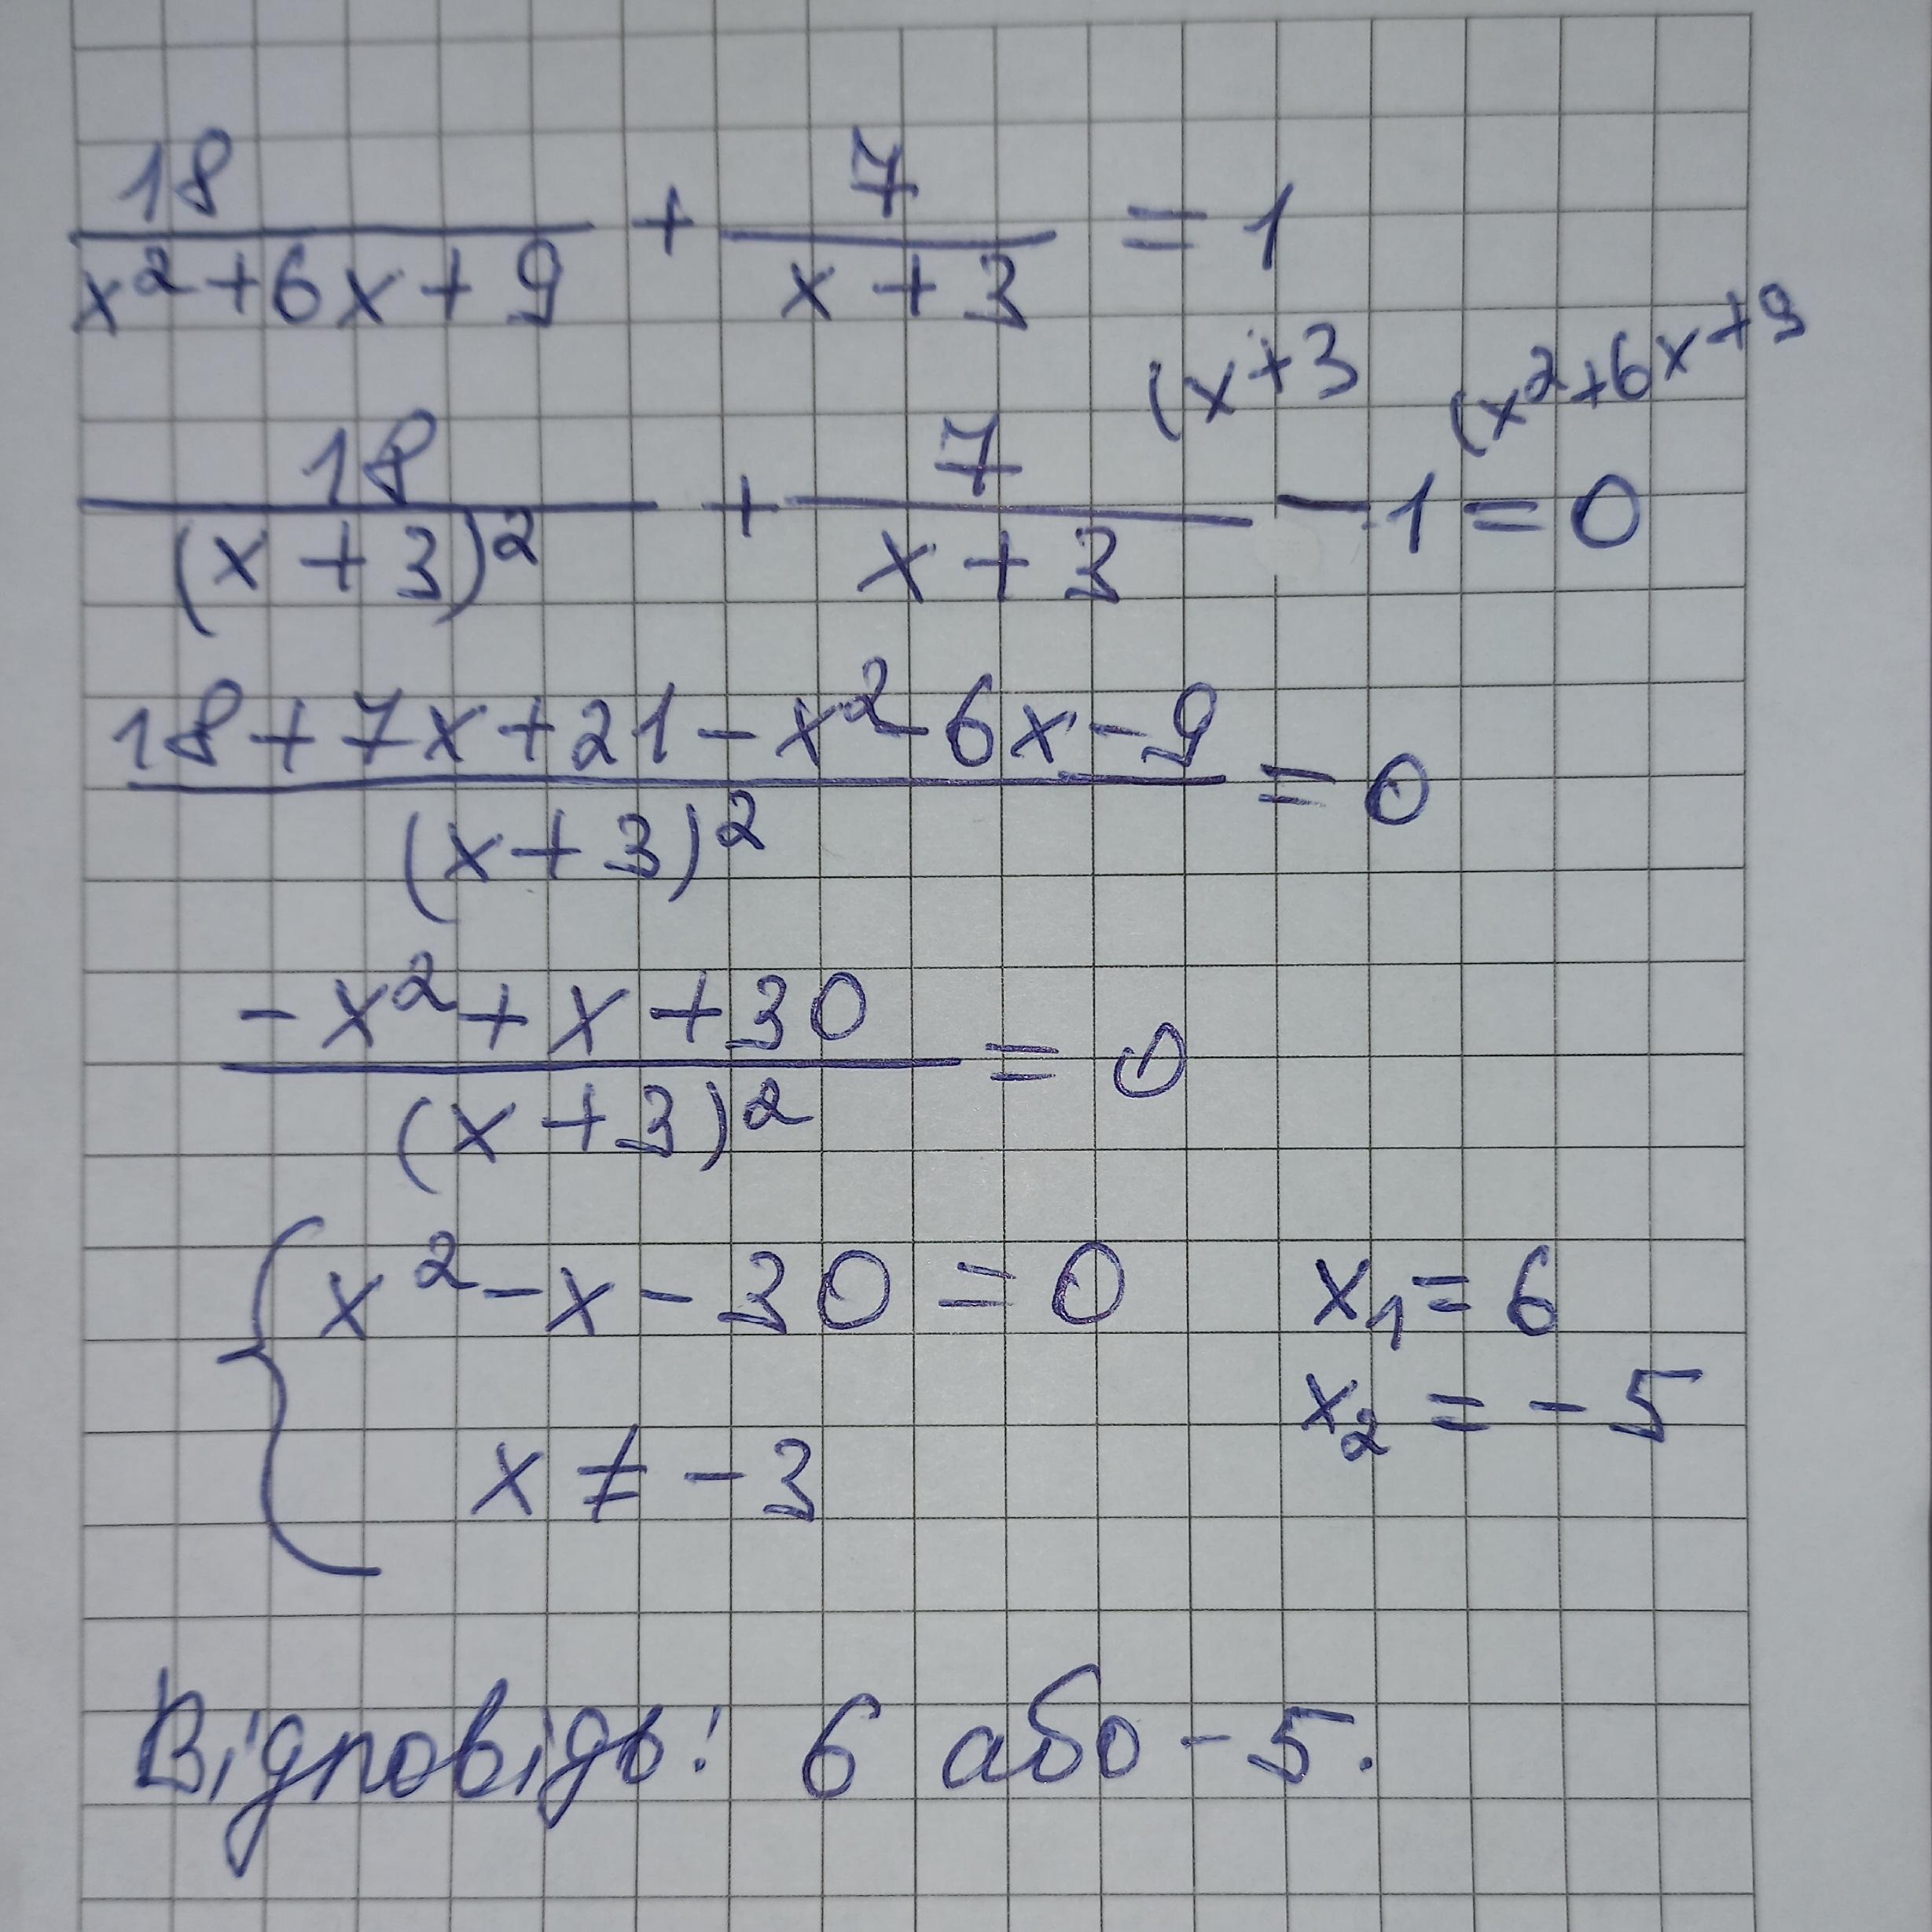 18/(x²+6x+9) + 7/(x+3) = 1
18/(x+3)² + 7/(x+3) (x+3 - 1 (x²+6x+9 = 0
(18+7x+21-x²-6x-9)/(x+3)² = 0
(-x²+x+30)/(x+3)² = 0
{ x²-x-30=0 x₁=6
x≠-3 x₂=-5
Відповідь: 6 або -5.